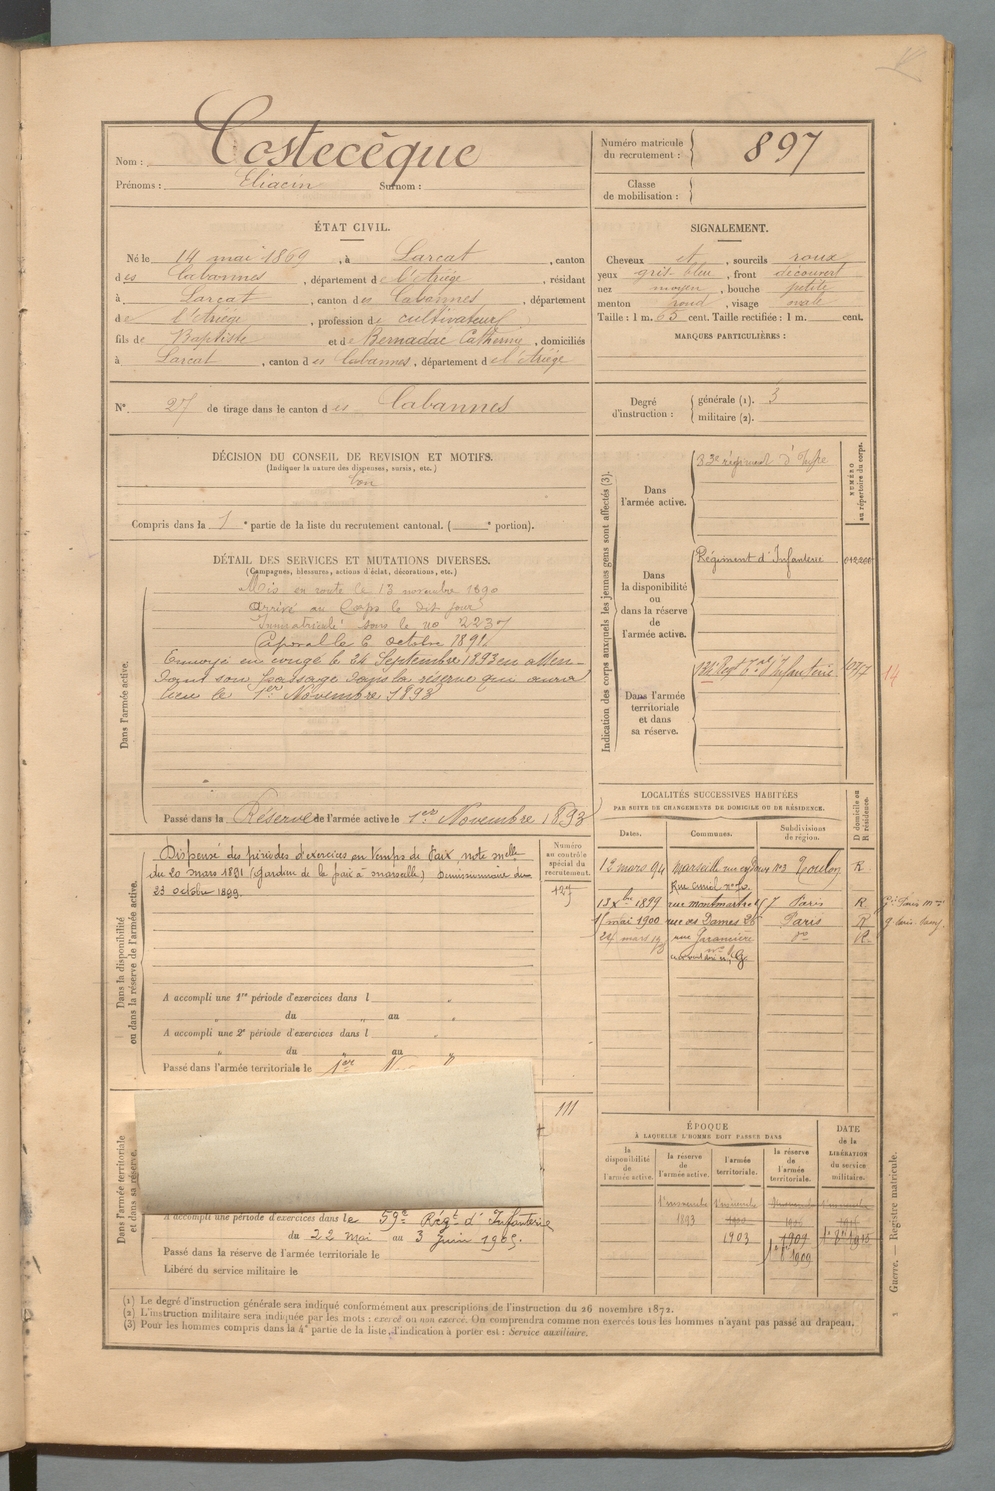 Nom : Costecèque
Prénoms : Eliacin Surnom :
Numéro matricule du recrutement : 897
Classe de mobilisation :
ÉTAT CIVIL.
Né le 14 mai 1869, à Larcat, canton
des Cabannes, département de l'Ariège, résidant
à Larcat, canton des Cabannes, département
de l'Ariège, profession de cultivateur
fils de Baptiste et de Bernadac Catherine, domiciliés
à Larcat, canton des Cabannes, département de l'Ariège
N° 27 de tirage dans le canton des Cabannes
SIGNALEMENT.
Cheveux et, sourcils roux
yeux gris bleu, front découvert
nez moyen, bouche petite
menton rond, visage ovale
Taille : 1 m. 65 cent. Taille rectifiée : 1 m. cent.
MARQUES PARTICULIÈRES :
Degré d'instruction : générale (1). 3
militaire (2).
DÉCISION DU CONSEIL DE REVISION ET MOTIFS.
(Indiquer la nature des dispenses, sursis, etc.)
bon
Compris dans la 1e partie de la liste du recrutement cantonal. ( e portion).
DÉTAIL DES SERVICES ET MUTATIONS DIVERSES.
(Campagnes, blessures, actions d'éclat, décorations, etc.)
Dans l'armée active.
Mis en route le 13 novembre 1890
arrivé au Corps le dit jour
Immatriculé sous le no 2237
Caporal le 6 octobre 1891
Envoyé en congé le 24 Septembre 1893 en atten-
dant son passage dans la réserve qui aura
lieu le 1er Novembre 1893
Passé dans la Réserve de l'armée active le 1er Novembre 1893
Indication des corps auxquels les jeunes gens sont affectés (3).
NUMÉRO au répertoire du corps.
Dans l'armée active.
régiment d'Infie
Dans la disponibilité ou dans la réserve de l'armée active.
Régiment d'Infanterie
Dans l'armée territoriale et dans sa réserve.
Regt Tal d'Infanterie
14
LOCALITÉS SUCCESSIVES HABITÉES
PAR SUITE DE CHANGEMENTS DE DOMICILE OU DE RÉSIDENCE.
Dates. Communes. Subdivisions de région. D domicile ou R résidence.
12 mars 94 Marseille Toulon R
1899 rue montmartre Paris R
mai 1900 rue des Dames 26 Paris R
mars R
Dans la disponibilité ou dans la réserve de l'armée active.
Numéro au contrôle spécial du recrutement.
Dispensé des périodes d'exercices en temps de Paix, note melle
du 20 mars 1891 (Gardien de la paix à marseille) Demissionnaire du
23 octobre 1899.
127
A accompli une 1re période d'exercices dans l
du au
A accompli une 2e période d'exercices dans l
du au
Passé dans l'armée territoriale le 1er
111
Dans l'armée territoriale et dans sa réserve.
A accompli une période d'exercices dans le 59e Régt d'Infanterie
du 22 Mai au 3 Juin 1905.
Passé dans la réserve de l'armée territoriale le
Libéré du service militaire le
ÉPOQUE
À LAQUELLE L'HOMME DOIT PASSER DANS
la disponibilité de l'armée active. la réserve de l'armée active. l'armée territoriale. la réserve de l'armée territoriale. DATE de la LIBÉRATION du service militaire.
1893
1903 1909
(1) Le degré d'instruction générale sera indiqué conformément aux prescriptions de l'instruction du 26 novembre 1872.
(2) L'instruction militaire sera indiquée par les mots : exercé ou non exercé. On comprendra comme non exercés tous les hommes n'ayant pas passé au drapeau.
(3) Pour les hommes compris dans la 4e partie de la liste, l'indication à porter est : Service auxiliaire.
Guerre. — Registre matricule.